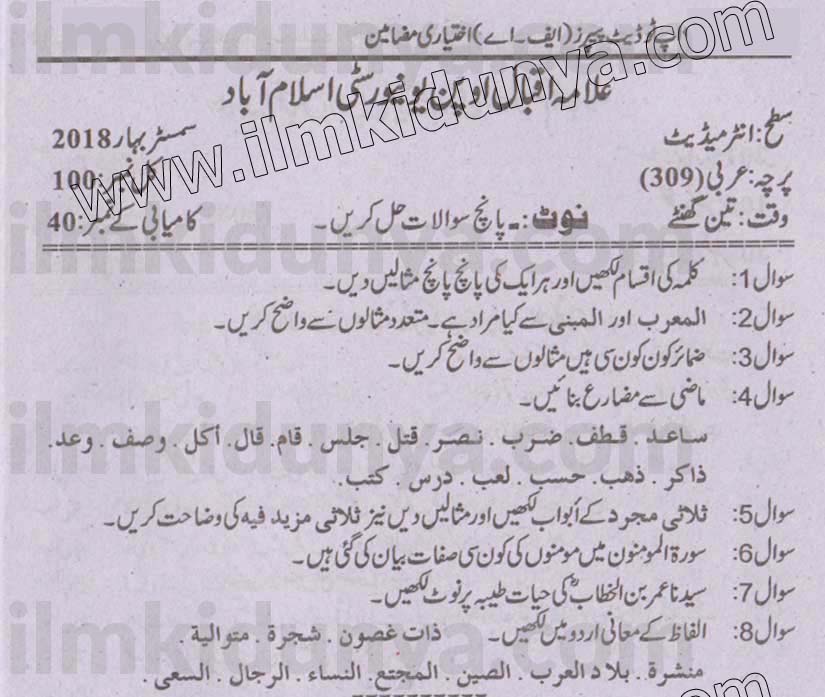 اپ ٹو ڈیٹ پیپرز (ایف۔اے) اختیاری مضامین
علامہ اقبال اوپن یونیورسٹی اسلام آباد
سطح: انٹرمیڈیٹ سمسٹر بہار 2018
پرچہ: عربی (309) کل نمبر: 100
وقت: تین گھنٹے نوٹ:۔ پانچ سوالات حل کریں۔ کامیابی کے نمبر: 40
سوال 1: کلمہ کی اقسام لکھیں اور ہر ایک کی پانچ پانچ مثالیں دیں۔
سوال 2: المعرب اور المبنی سے کیا مراد ہے۔ متعدد مثالوں سے واضح کریں۔
سوال 3: ضمائر کون کون سی ہیں مثالوں سے واضح کریں۔
سوال 4: ماضی سے مضارع بنائیں۔
ساعد . قطف . ضرب . نصر . قتل . جلس . قام . قال . أکل . وصف . وعد .
ذاکر . ذھب . حسب . لعب . درس . کتب .
سوال 5: ثلاثی مجرد کے أبواب لکھیں اور مثالیں دیں نیز ثلاثی مزید فیه کی وضاحت کریں۔
سوال 6: سورۃ المومنون میں مومنوں کی کون سی صفات بیان کی گئی ہیں۔
سوال 7: سیدنا عمر بن الخطابؓ کی حیات طیبہ پر نوٹ لکھیں۔
سوال 8: الفاظ کے معانی اردو میں لکھیں۔ ذات غصون . شجرة . متوالية .
منشرة . بلاد العرب . الصین . المجتع . النساء . الرجال . السعی .
www.ilmkidunya.com
ilmkidunya.com
ilmkidunya.com
ilmkidunya.com
ilmkidunya.com